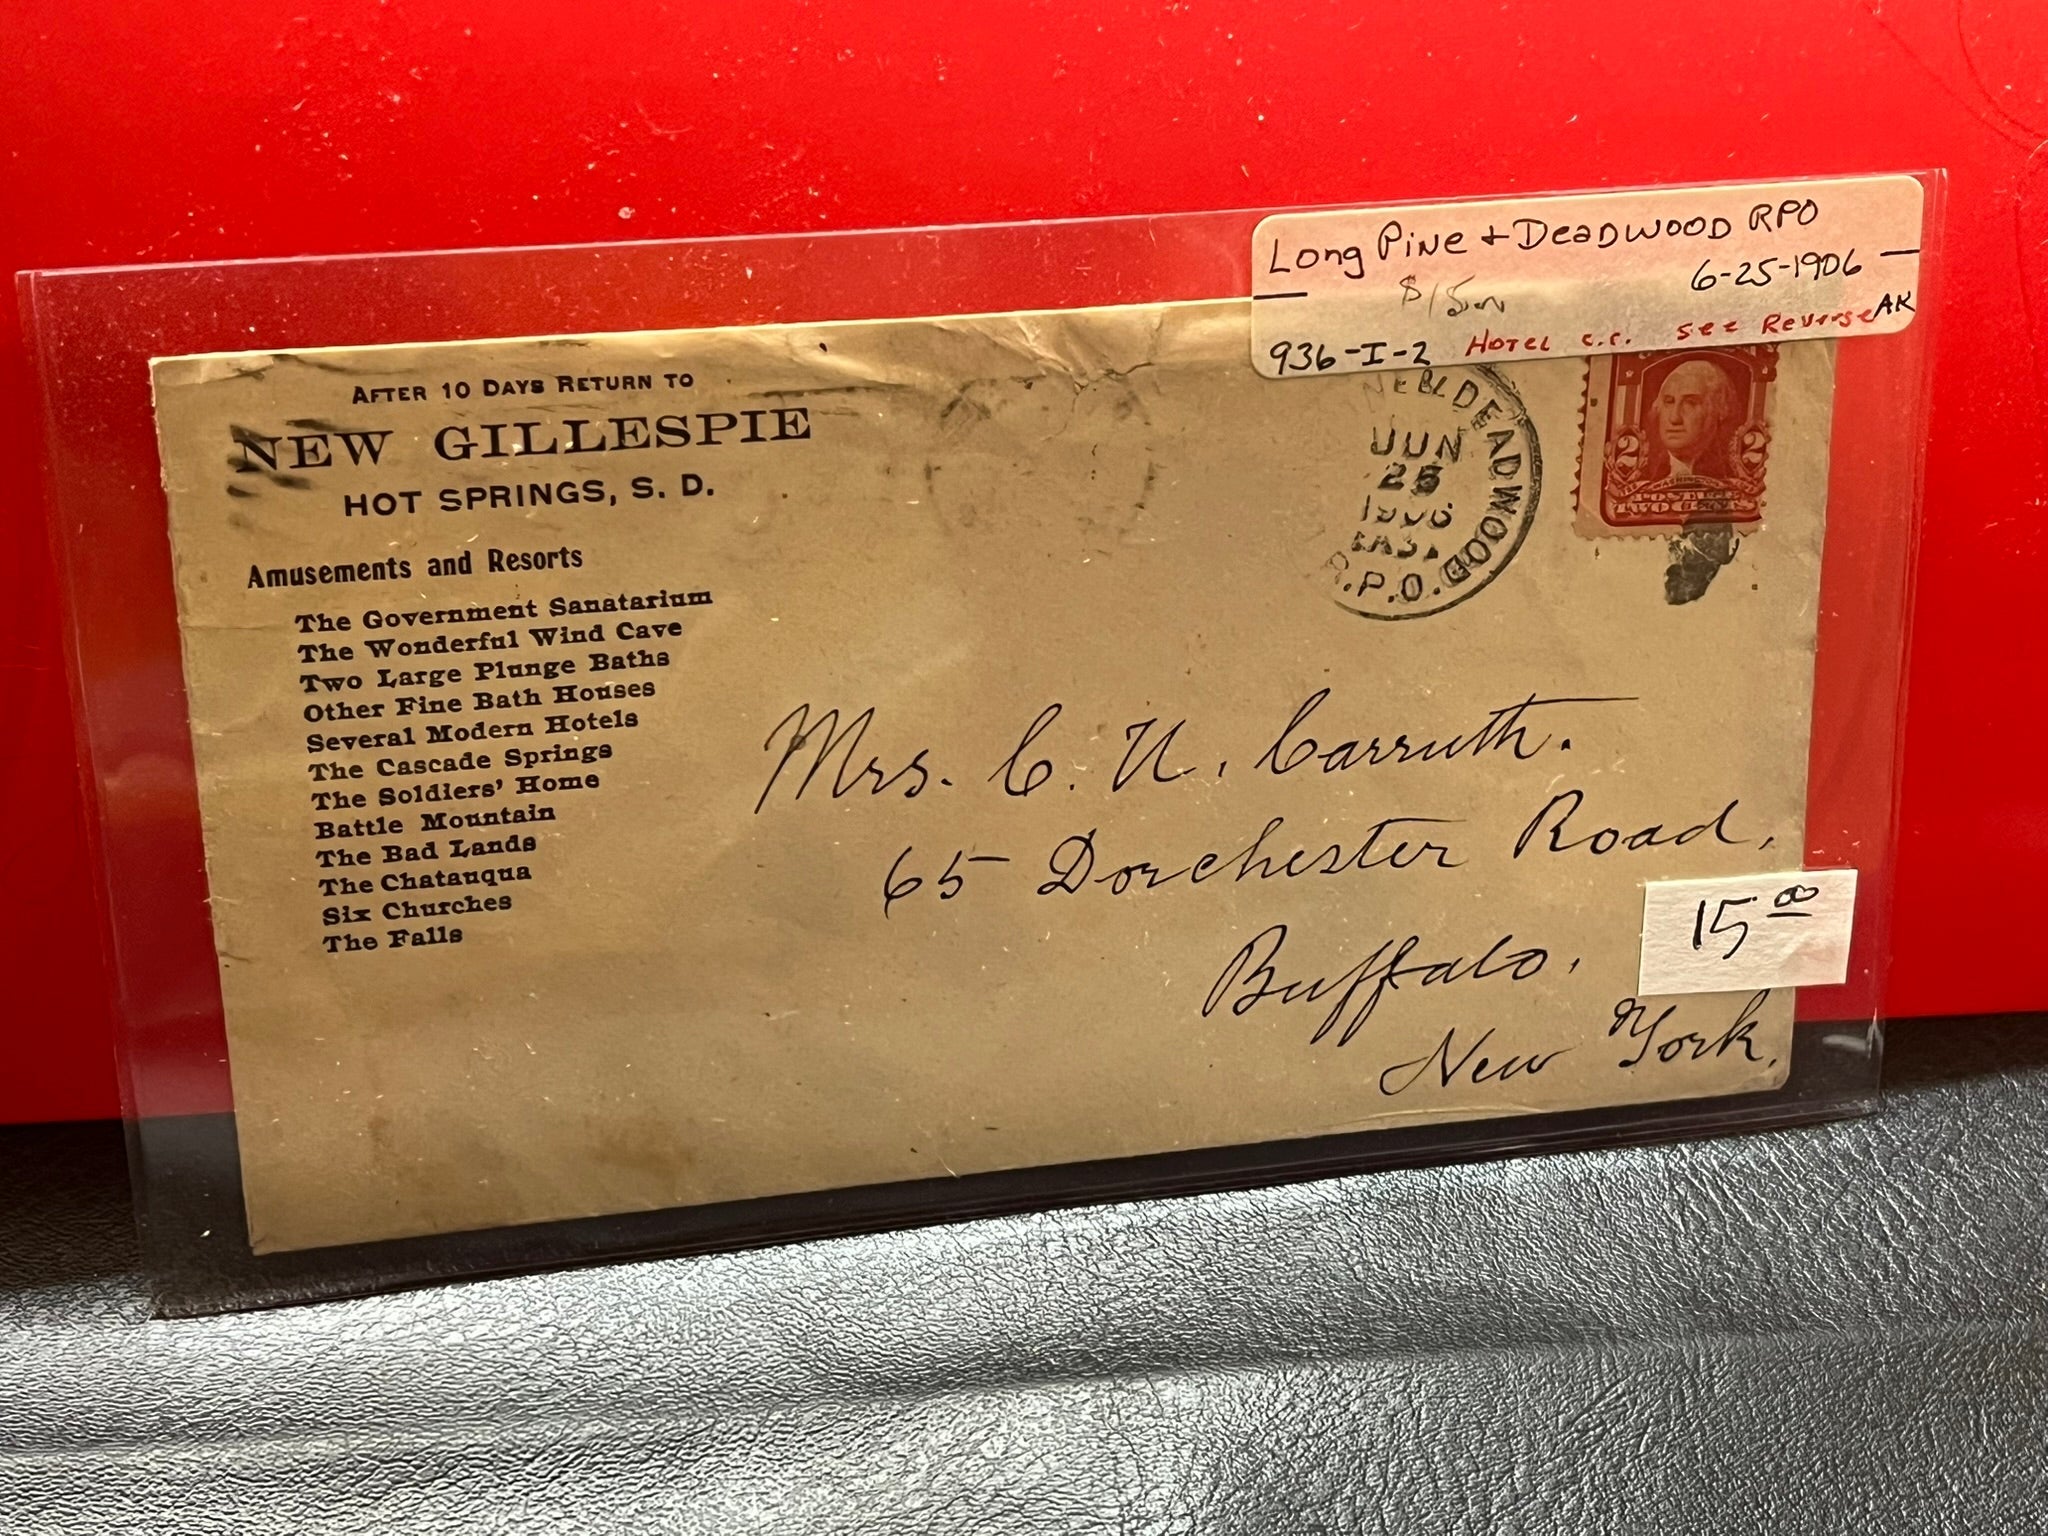 Long Pine + Deadwood RPO
6-25-1906
$15
936-I-2 Hotel c.c. see Reverse AK
AFTER 10 DAYS RETURN TO
NEW GILLESPIE
HOT SPRINGS, S. D.
Amusements and Resorts
The Government Sanatarium
The Wonderful Wind Cave
Two Large Plunge Baths
Other Fine Bath Houses
Several Modern Hotels
The Cascade Springs
The Soldiers' Home
Battle Mountain
The Bad Lands
The Chatauqua
Six Churches
The Falls
DEADWOOD
JUN
25
1906
EAST
R.P.O.
2 2
WASHINGTON
POSTAGE
TWO CENTS
Mrs. C. N. Carruth.
65 Dorchester Road,
Buffalo,
New York.
15 00